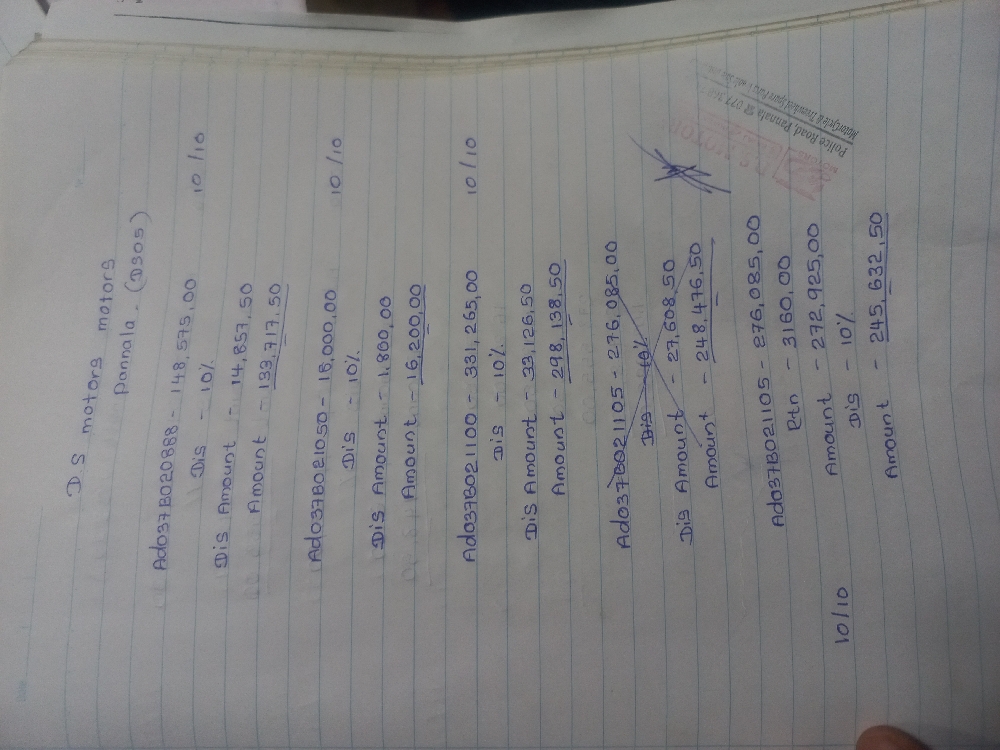 D S motors motors
Pannala - (DS05)
Ado37B020888 - 148,575,00
Dis - 10% 10/10
Dis Amount - 14,857.50
Amount - 133,717.50
Ado37B021050 - 18,000,00
Dis - 10% 10/10
Dis Amount - 1,800,00
Amount - 16,200,00
Ado37B021100 - 331,265,00
Dis - 10% 10/10
Dis Amount - 33,126,50
Amount - 298,138,50
Ado37B021105 - 276,085,00
Dis - 10%
Dis Amount - 27,608,50
Amount - 248,476,50
Ado37B021105 - 276,085,00
Rtn - 3160,00
Amount - 272,925,00
10/10 Dis - 10%
Amount - 245,632,50
MOTOR
Police Road, Pannala ☎ 077